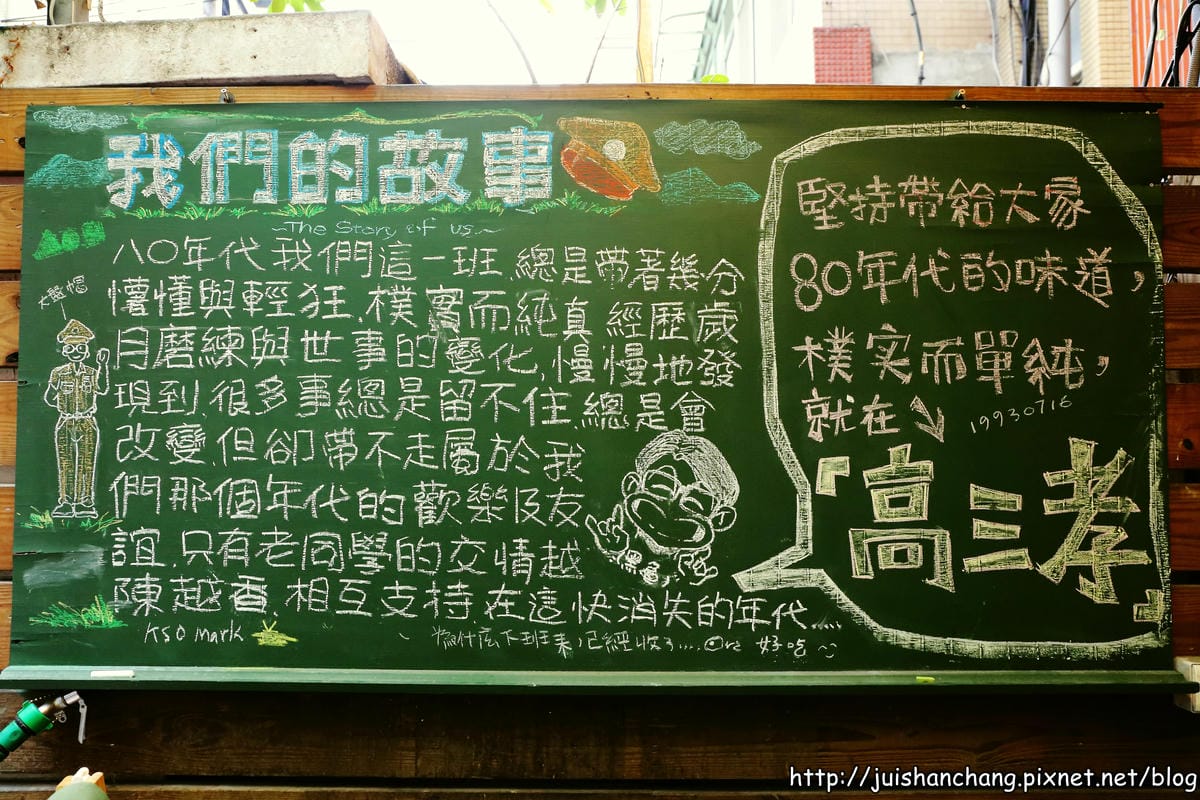 我們的故事
~The Story of us~
八〇年代我們這一班.總是帶著幾分
懵懂與輕狂.樸實而純真.經歷歲
月磨練與世事的變化,慢慢地發
現到.很多事總是留不住.總是會
改變.但卻帶不走屬於我
們那個年代的歡樂及友
誼.只有老同學的交情越
陳越香.相互支持.在這快消失的年代....
大盤帽
KSO Mark
為什么下班來,已經收了....
好吃
堅持帶給大家
80年代的味道,
樸实而單純,
就在
19930716
「高三孝」
http://juishanchang.pixnet.net/blog